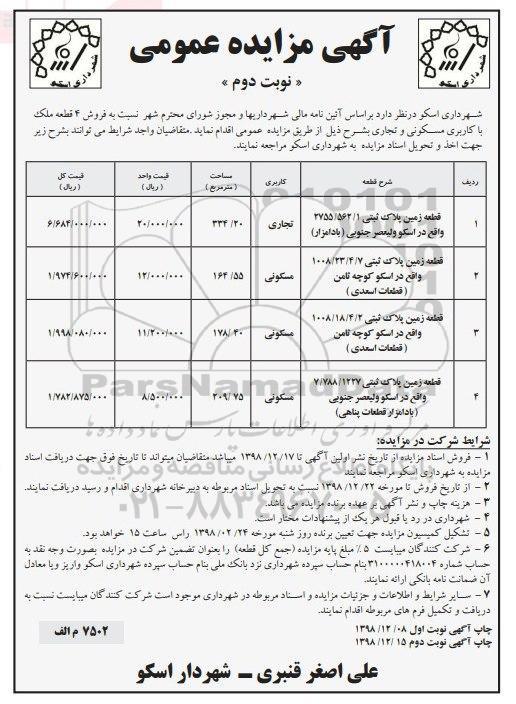 آگهی مزایده عمومی
شهرداری اسکو
شهرداری اسکو
« نوبت دوم »
شهرداری اسکو درنظر دارد براساس آئین نامه مالی شهرداریها و مجوز شورای محترم شهر نسبت به فروش ۴ قطعه ملک
با کاربری مسکونی و تجاری بشرح ذیل از طریق مزایده عمومی اقدام نماید .متقاضیان واجد شرایط می توانند بشرح زیر
جهت اخذ و تحویل اسناد مزایده به شهرداری اسکو مراجعه نمایند.
ردیف شرح قطعه کاربری مساحت ( مترمربع ) قیمت واحد ( ریال ) قیمت کل ( ریال )
۱ قطعه زمین پلاک ثبتی ۲۷۵۵/۵۶۲/۱ تجاری ۳۳۴/۲۰ ۲۰/۰۰۰/۰۰۰ ۶/۶۸۴/۰۰۰/۰۰۰
واقع در اسکو ولیعصر جنوبی (بادامزار)
۲ قطعه زمین پلاک ثبتی ۱۰۰۸/۲۳/۴/۷ مسکونی ۱۶۴/۵۵ ۱۲/۰۰۰/۰۰۰ ۱/۹۷۴/۶۰۰/۰۰۰
واقع در اسکو کوچه ثامن
( قطعات اسعدی )
۳ قطعه زمین پلاک ثبتی ۱۰۰۸/۱۸/۴/۲ مسکونی ۱۷۸/۴۰ ۱۱/۲۰۰/۰۰۰ ۱/۹۹۸/۰۸۰/۰۰۰
واقع در اسکو کوچه ثامن
( قطعات اسعدی )
۴ قطعه زمین پلاک ثبتی ۷/۷۸۸/۱۲۲۷ مسکونی ۲۰۹/۷۵ ۸/۵۰۰/۰۰۰ ۱/۷۸۲/۸۷۵/۰۰۰
واقع در اسکو ولیعصر جنوبی
(بادامزار قطعات پناهی)
ParsNamadData
شرایط شرکت در مزایده:
۱ – فروش اسناد مزایده از تاریخ نشر اولین آگهی تا ۱۷ /۱۲ /۱۳۹۸ میباشد.متقاضیان میتواند تا تاریخ فوق جهت دریافت اسناد
مزایده به شهرداری اسکو مراجعه نمایند
۲ – از تاریخ فروش تا مورخه ۲۲ /۱۲ /۱۳۹۸ نسبت به تحویل اسناد مربوطه به دبیرخانه شهرداری اقدام و رسید دریافت نمایند.
۳ – هزینه چاپ و نشر آگهی بر عهده برنده مزایده می باشد.
۴ – شهرداری در رد یا قبول هر یک از پیشنهادات مختار است.
۵ – تشکیل کمیسیون مزایده جهت تعیین برنده روز شنبه مورخه ۲۴ /۰۲ /۱۳۹۸ راس ساعت ۱۵ خواهد بود.
۶ – شرکت کنندگان میبایست ۵٪ مبلغ پایه مزایده (جمع کل قطعه) را بعنوان تضمین شرکت در مزایده بصورت وجه نقد به
حساب شماره ۳۱۰۰۰۰۰۴۱۸۰۰۴ بنام حساب سپرده شهرداری نزد بانک ملی بنام حساب سپرده شهرداری اسکو واریز ویا معادل
آن ضمانت نامه بانکی ارائه نمایند.
۷ – سایر شرایط و اطلاعات و جزئیات مزایده و اسناد مربوطه در شهرداری موجود است شرکت کنندگان میبایست نسبت به
دریافت و تکمیل فرم های مربوطه اقدام نمایند.
چاپ آگهی نوبت اول ۰۸ /۱۲ /۱۳۹۸
چاپ آگهی نوبت دوم ۱۵ /۱۲ /۱۳۹۸
۷۵۰۲ م الف
علی اصغر قنبری – شهردار اسکو